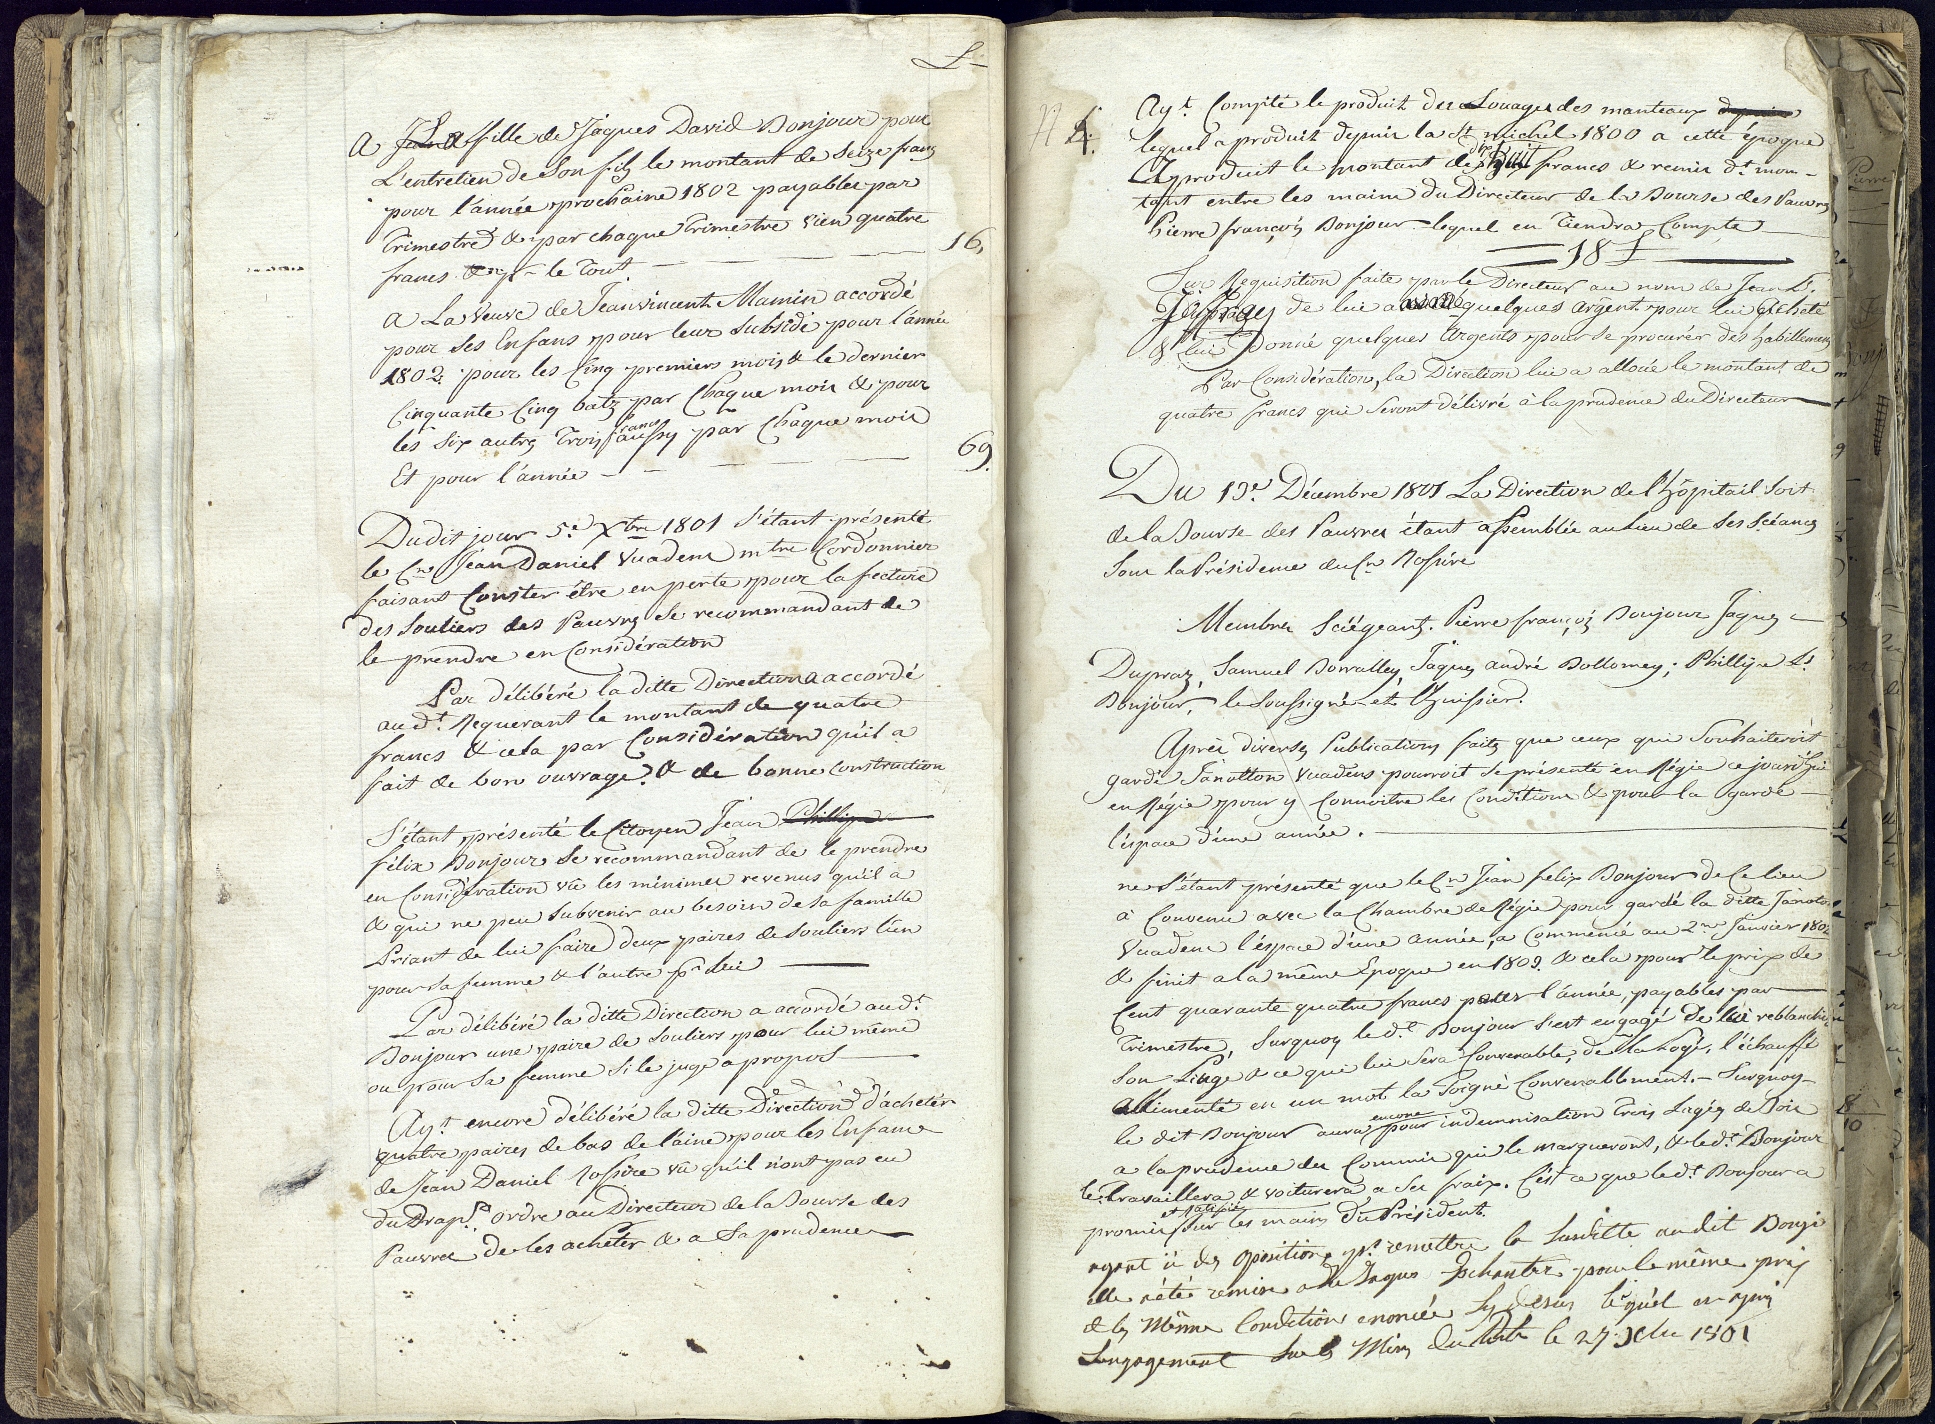 L.
A La fille de Jaques David Bonjour pour
L'entretien de Son fils le montant de Seize francs
pour l'année prochaine 1802 payables par
Trimestre & par chaque Trimestre vien quatre
francs le Tout 16,
A La Veuve de Jean vincent Mamin accordé
pour Ses Enfans pour leur Subside pour l'année
1802. pour les Cinq premiers mois & le dernier
Cinquante Cinq batz par Chaque mois & pour
les Six autres Trois francs aussy par Chaque mois
Et pour l'année 69.
Dudit jour 5e Xbre 1801 S'étant présenté
le Cn Jean Daniel Vuadens mtre Cordonnier
faisant Conster être en perte pour la fecture
des Souliers des Pauvres Se recommandant de
le prendre en Considération
Par délibéré la ditte Direction a accordé
au dt. Requerant le montant de quatre
francs & cela par Considération qu'il a
fait de bon ouvrage & de bonne Construction
S'étant présenté le Citoyen Jean Phillipe
félix Bonjour Se recommandant de le prendre
en Considération vû les minimes revenus qu'il a
& qui ne peu Subvenir au besoin de Sa famille
Priant de lui faire deux paires de Souliers l'un
pour Sa femme & l'autre pr Lui
Par délibéré la ditte Direction a accordé au dt.
Bonjour une paire de Souliers pour lui même
ou pour Sa femme Si le juge a propos
Ayt. encore délibéré la ditte Direction d'acheter
quatre paires de bas de laine pour les Enfans
de Jean Daniel Rossire vû qu'il n'ont pas eu
du Drap. ordre au Directeur de la Bourse des
Pauvres de les acheter & a Sa prudence
4.
Ayt. Compté le produit des Louages des manteaux depuis
lequel a produit depuis la St. michel 1800 a cette époque
produit le montant de huit francs & remis dt. mon-
tant entre les mains du Directeur de la Bourse des Pauvres
Pierre françois Bonjour lequel en Tiendra Compte
18 f
Sur Requisition faite par le Directeur au nom de Jean Ls.
de lui quelques argent pour lui acheté
& lui Donné quelques Argents pour Se procurér des habillemens
Par Considération, la Direction lui a alloué le montant de
quatre francs qui Seront délivré à la prudence du Directeur
Du 19e. Décembre 1801 La Direction de l'hôpital Soit
de la Bourse des Pauvres étant assemblée au lieu de Ses Scéances
Sous la Présidence du Cn Rossire
Membres Sciégeants. Pierre françois Bonjour Jaques
Dupraz, Samuel Borralley, Jaques andré Bollomey, Phillipe Ls.
Bonjour, le Soussigné et l'huissier.
Après diverses Publications faites que ceux qui Souhaiteroit
gardé Janotton Vuadens pourroit Se présenté en Régie ce jourd'hui
en Régie pour y Connoitre les Conditions & pour la garde
l'espace d'une année.
ne S'étant présenté que le Cn Jean felix Bonjour de Ce lieu
à Convenu avec la Chambre de Régie pour gardé la ditte Janoton
Vuadens l'éspace d'une année, a Commencé au 2me Janvier 1802
& finit a la même Epoque en 1803. & cela pour le prix de
Cent quarante quatre francs pour l'année, payables par
Trimestre, Surquoy le dt. Bonjour S'est engagé de lui reblanchir
Son Linge & ce qui lui Sera Convenable, de la Logé, l'échauffé
allimenté en un mot la Soigné Convenablement. - Surquoy
le dit Bonjour aura encore pour indemnisation Trois Lugées de Bois
a la prudence des Commis qui le marqueront, & le dt. Bonjour
le Travaillera & voiturera a Ses fraix. C'est a que le dt. Bonjour a
promis et ratifié Sur les mains du Président.
ayant ü des opositions pr. remettre la Susditte audit Bonjr
elle a été remise a Jaques pour le même prix
& les même Conditions enoncée Cy desus lequel en a pris
Lengagement Sur les Mins du le 27. Xbre 1801